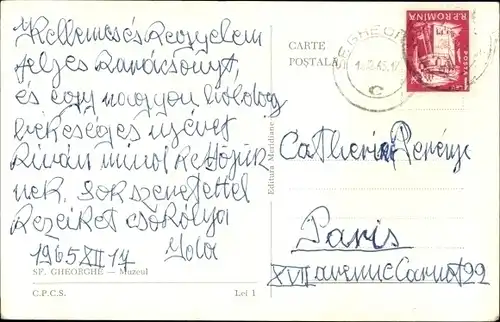 Kellemes és Kegyelem
teljes Karácsonyt,
és egy nagyon boldog
békeséges ujévet
Kíván mind Kettőjük
nek. Sok szeretettel
Kezeiket csókolja
1965 XII 17 Jola
SF. GHEORGHE — Muzeul
C.P.C.S. Lei 1
Editura Meridiane
CARTE
POŞTALĂ
GHEOR
C
R.P.ROMINA
POSTA
Catherine Perényi
Paris
XVII avenue Carnot 22